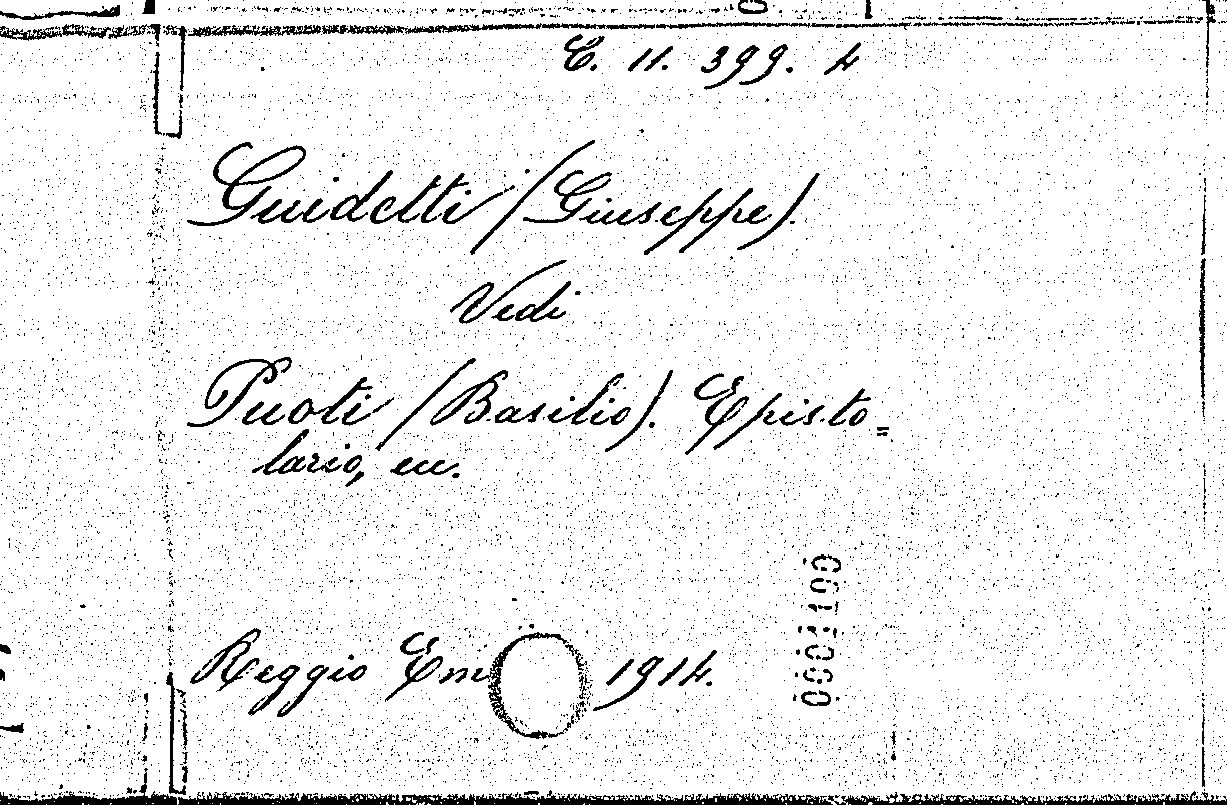 C. 11. 399. 4
Guidetti (Giuseppe).
Vedi
Puoti (Basilio). Episto=
lario, ecc.
Reggio Em 1914.
0001100